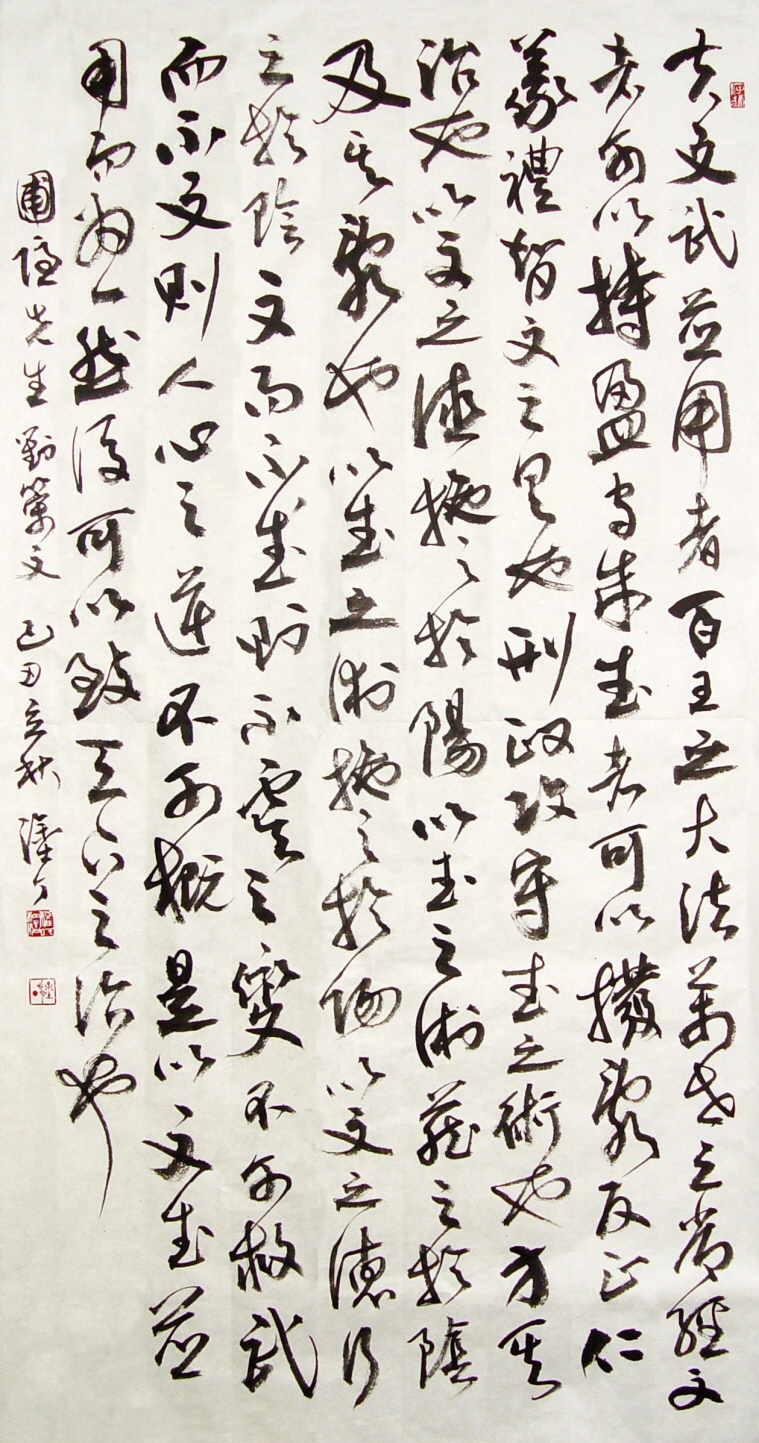 夫文武並用者百王之大法萬世之常經文
者可以持盈守成武者可以撥亂反正仁
義禮智文之具也刑政攻守武之術也方其
治也以文之德施之於陽以武之術藏之於陰
及其亂也以武之術施之於陽以文之德行
之於陰文而不武則不虞之變不可救武
而不文則人心之逆不可概是以文武並
用而爲一然後可以致天下之治也
圃隱先生對策文 己丑立秋